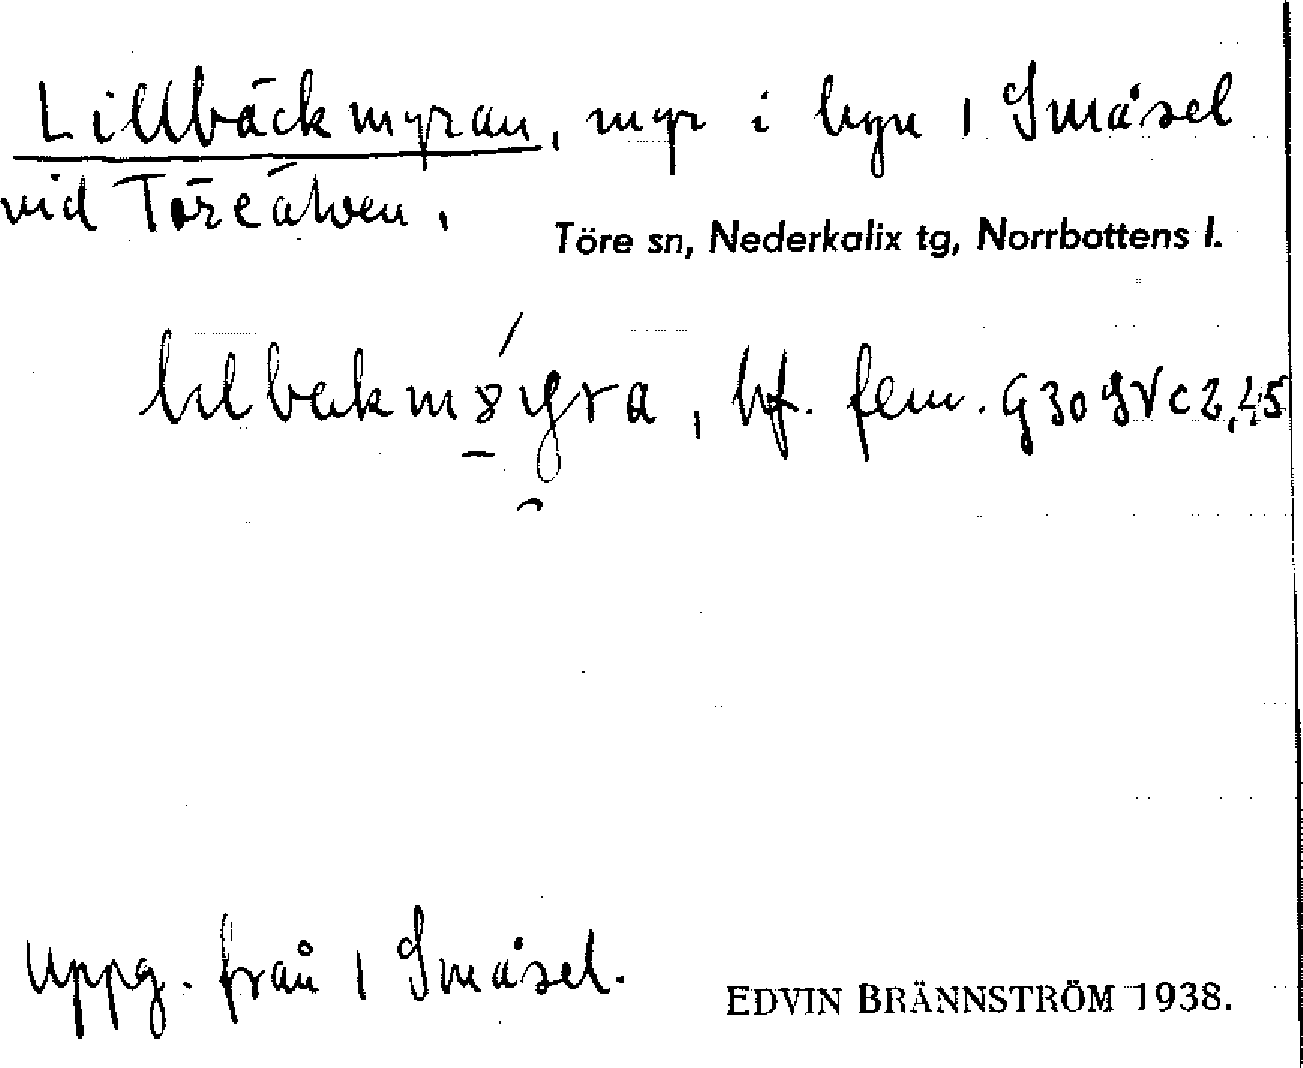 Lillbäckmyran, myr i byn 1 Småsel
vid Töreälven.
Töre sn, Nederkalix tg, Norrbottens l.
bf. fem. G30SVc2,45
Uppg. från 1 Småsel.
EDVIN BRÄNNSTRÖM 1938.